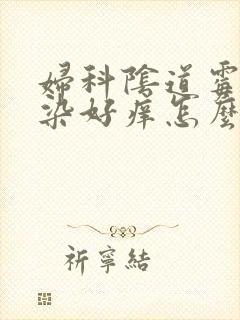 婦科陰道霉
染好痒怎麼
祈寧結